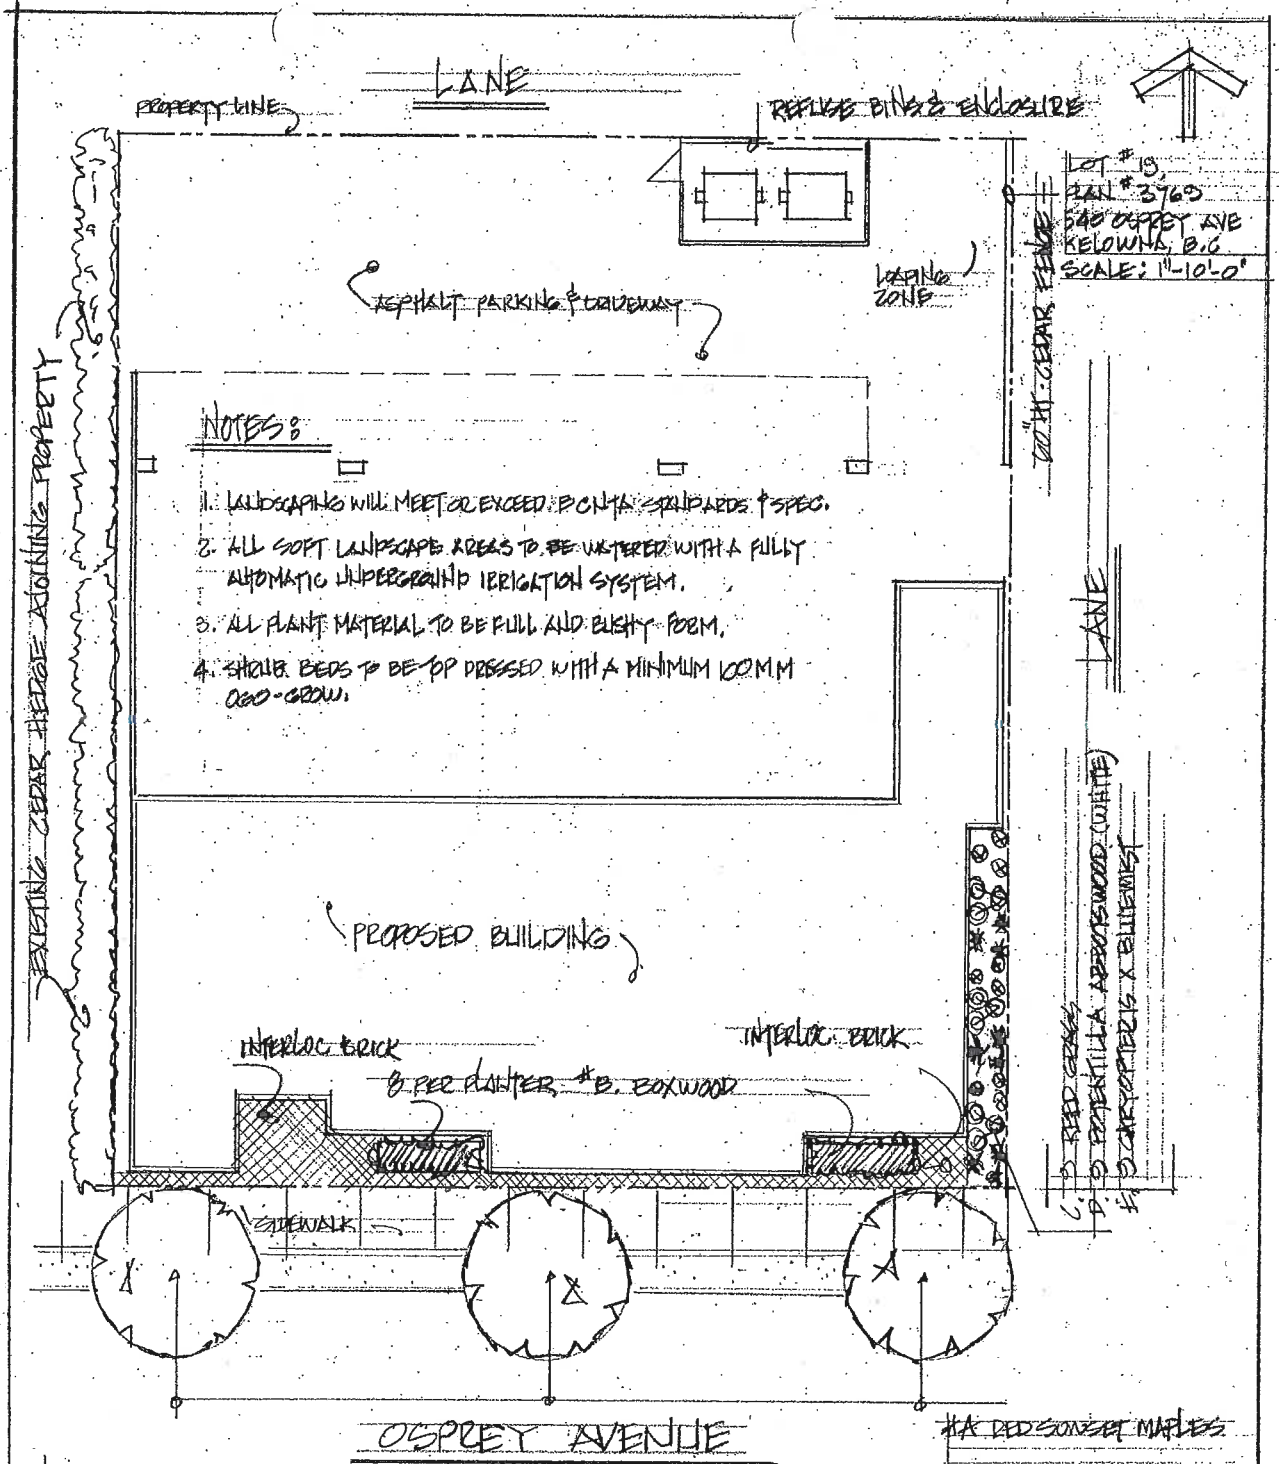 LANE
PROPERTY LINE
REFUSE BINS & ENCLOSURE
LOT # 19,
PLAN # 3769
540 OSPREY AVE
KELOWNA, B.C
SCALE: 1"-10'-0"
60" HT. CEDAR FENCE
LOADING
ZONE
ASPHALT PARKING & DRIVEWAY
EXISTING CEDAR HEDGE AJOINING PROPERTY
NOTES:
1. LANDSCAPING WILL MEET OR EXCEED BCNTA STANDARDS & SPEC.
2. ALL SOFT LANDSCAPE AREAS TO BE WATERED WITH A FULLY
AUTOMATIC UNDERGROUND IRRIGATION SYSTEM.
3. ALL PLANT MATERIAL TO BE FULL AND BUSHY FORM.
4. SHRUB BEDS TO BE TOP DRESSED WITH A MINIMUM 100MM
OGO-GROW.
LANE
PROPOSED BUILDING
INTERLOC BRICK
INTERLOC BRICK
8 PER PLANTER, #B. BOXWOOD
C. 9 REED GRASS
D. 9 POTENTILLA ABBOTSWOOD (WHITE)
E. 9 CARYOPTERIS X BLUEMIST
SIDEWALK
A
A
A
OSPREY AVENUE
#A RED SUNSET MAPLES